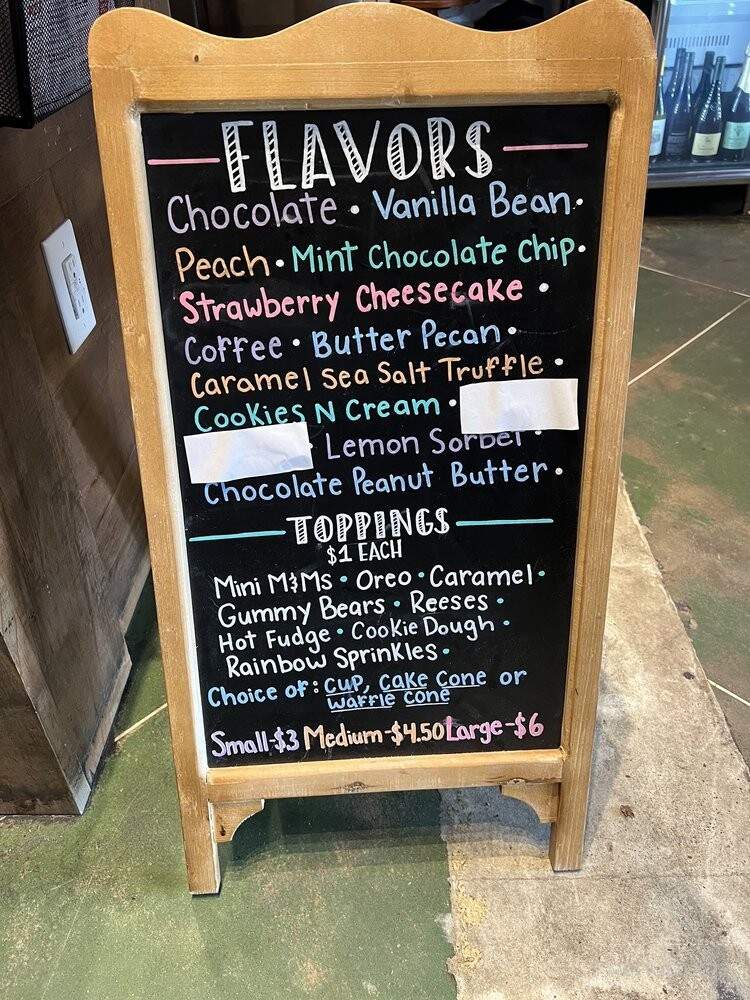 FLAVORS
Chocolate • Vanilla Bean •
Peach • Mint Chocolate Chip •
Strawberry Cheesecake •
Coffee • Butter Pecan •
Caramel Sea Salt Truffle •
Cookies N Cream •
• Lemon Sorbet •
Chocolate Peanut Butter •
TOPPINGS
$1 EACH
Mini M&Ms • Oreo • Caramel •
Gummy Bears • Reeses •
Hot Fudge • Cookie Dough •
Rainbow Sprinkles •
Choice of: cup, cake cone or
waffle cone
Small-$3 Medium-$4.50 Large-$6